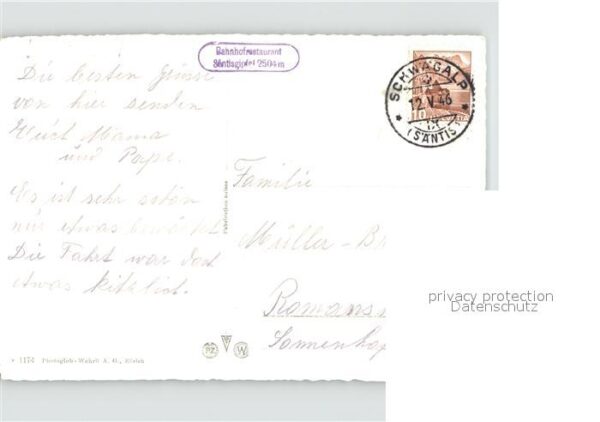 Bahnhofrestaurant
Säntisgipfel 2504 m
SCHWÄGALP
12.V.48
(SÄNTIS)
10
Die besten Grüsse
von hier senden
Euch Mama
und Papa.
Es ist sehr schön
nur etwas bewölkt
Die Fahrt war doch
etwas kitzlich.
Familie
Müller-B
Romans
Sonnenha
privacy protection
Datenschutz
1176 Photoglob-Wehrli A. G., Zürich
PZ
W